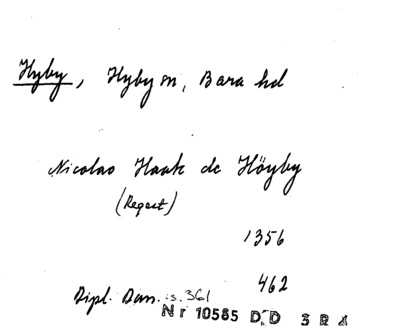 Hyby, Hyby sn, Bara hd
Nicolao Haak de Höyby
(Regest)
1356
462
Dipl. Dan. s. 361
Nr 10585 DD 3 R 4